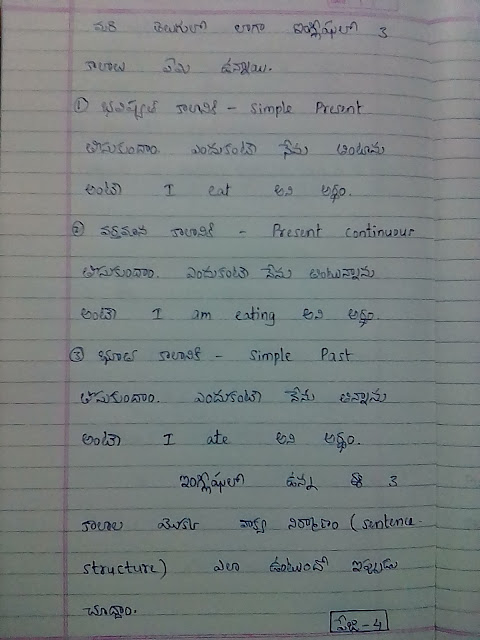 మరి తెలుగులో లాగా ఇంగ్లీషులో 3
కాలాలు ఏమి ఉన్నాయి.
① భవిష్యత్ కాలానికి - Simple Present
తీసుకుందాం. ఎందుకంటే నేను తింటాను
అంటే I eat అని అర్థం.
② వర్తమాన కాలానికి - Present continuous
తీసుకుందాం. ఎందుకంటే నేను తింటున్నాను
అంటే I am eating అని అర్థం.
③ భూత కాలానికి - Simple Past
తీసుకుందాం. ఎందుకంటే నేను తిన్నాను
అంటే I ate అని అర్థం.
ఇంగ్లీషులో ఉన్న ఈ 3
కాలాల యొక్క వాక్య నిర్మాణం (sentence
structure) ఎలా ఉంటుందో ఇప్పుడు
చూద్దాం.
పేజి-4